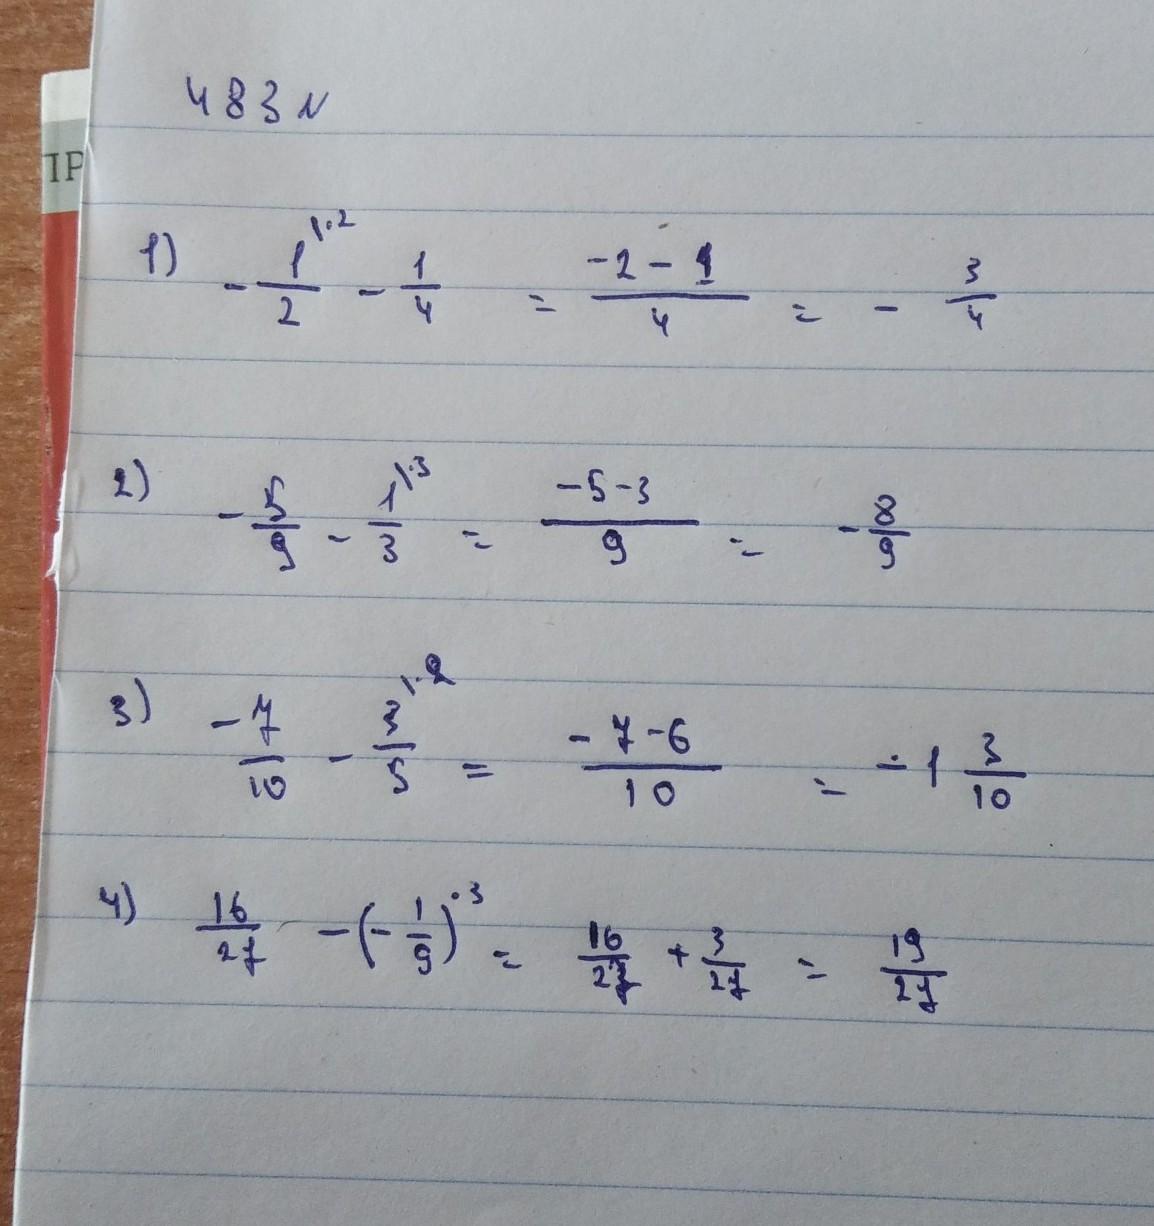 ПР
483 N
1) - 1/2 |·2 - 1/4 = -2 - 1/4 = - 3/4
2) - 5/9 - 1/3 |·3 = -5-3/9 = - 8/9
3) -7/10 - 3/5 |·2 = -7-6/10 = -1 3/10
4) 16/27 - (- 1/9) ·3 = 16/27 + 3/27 = 19/27